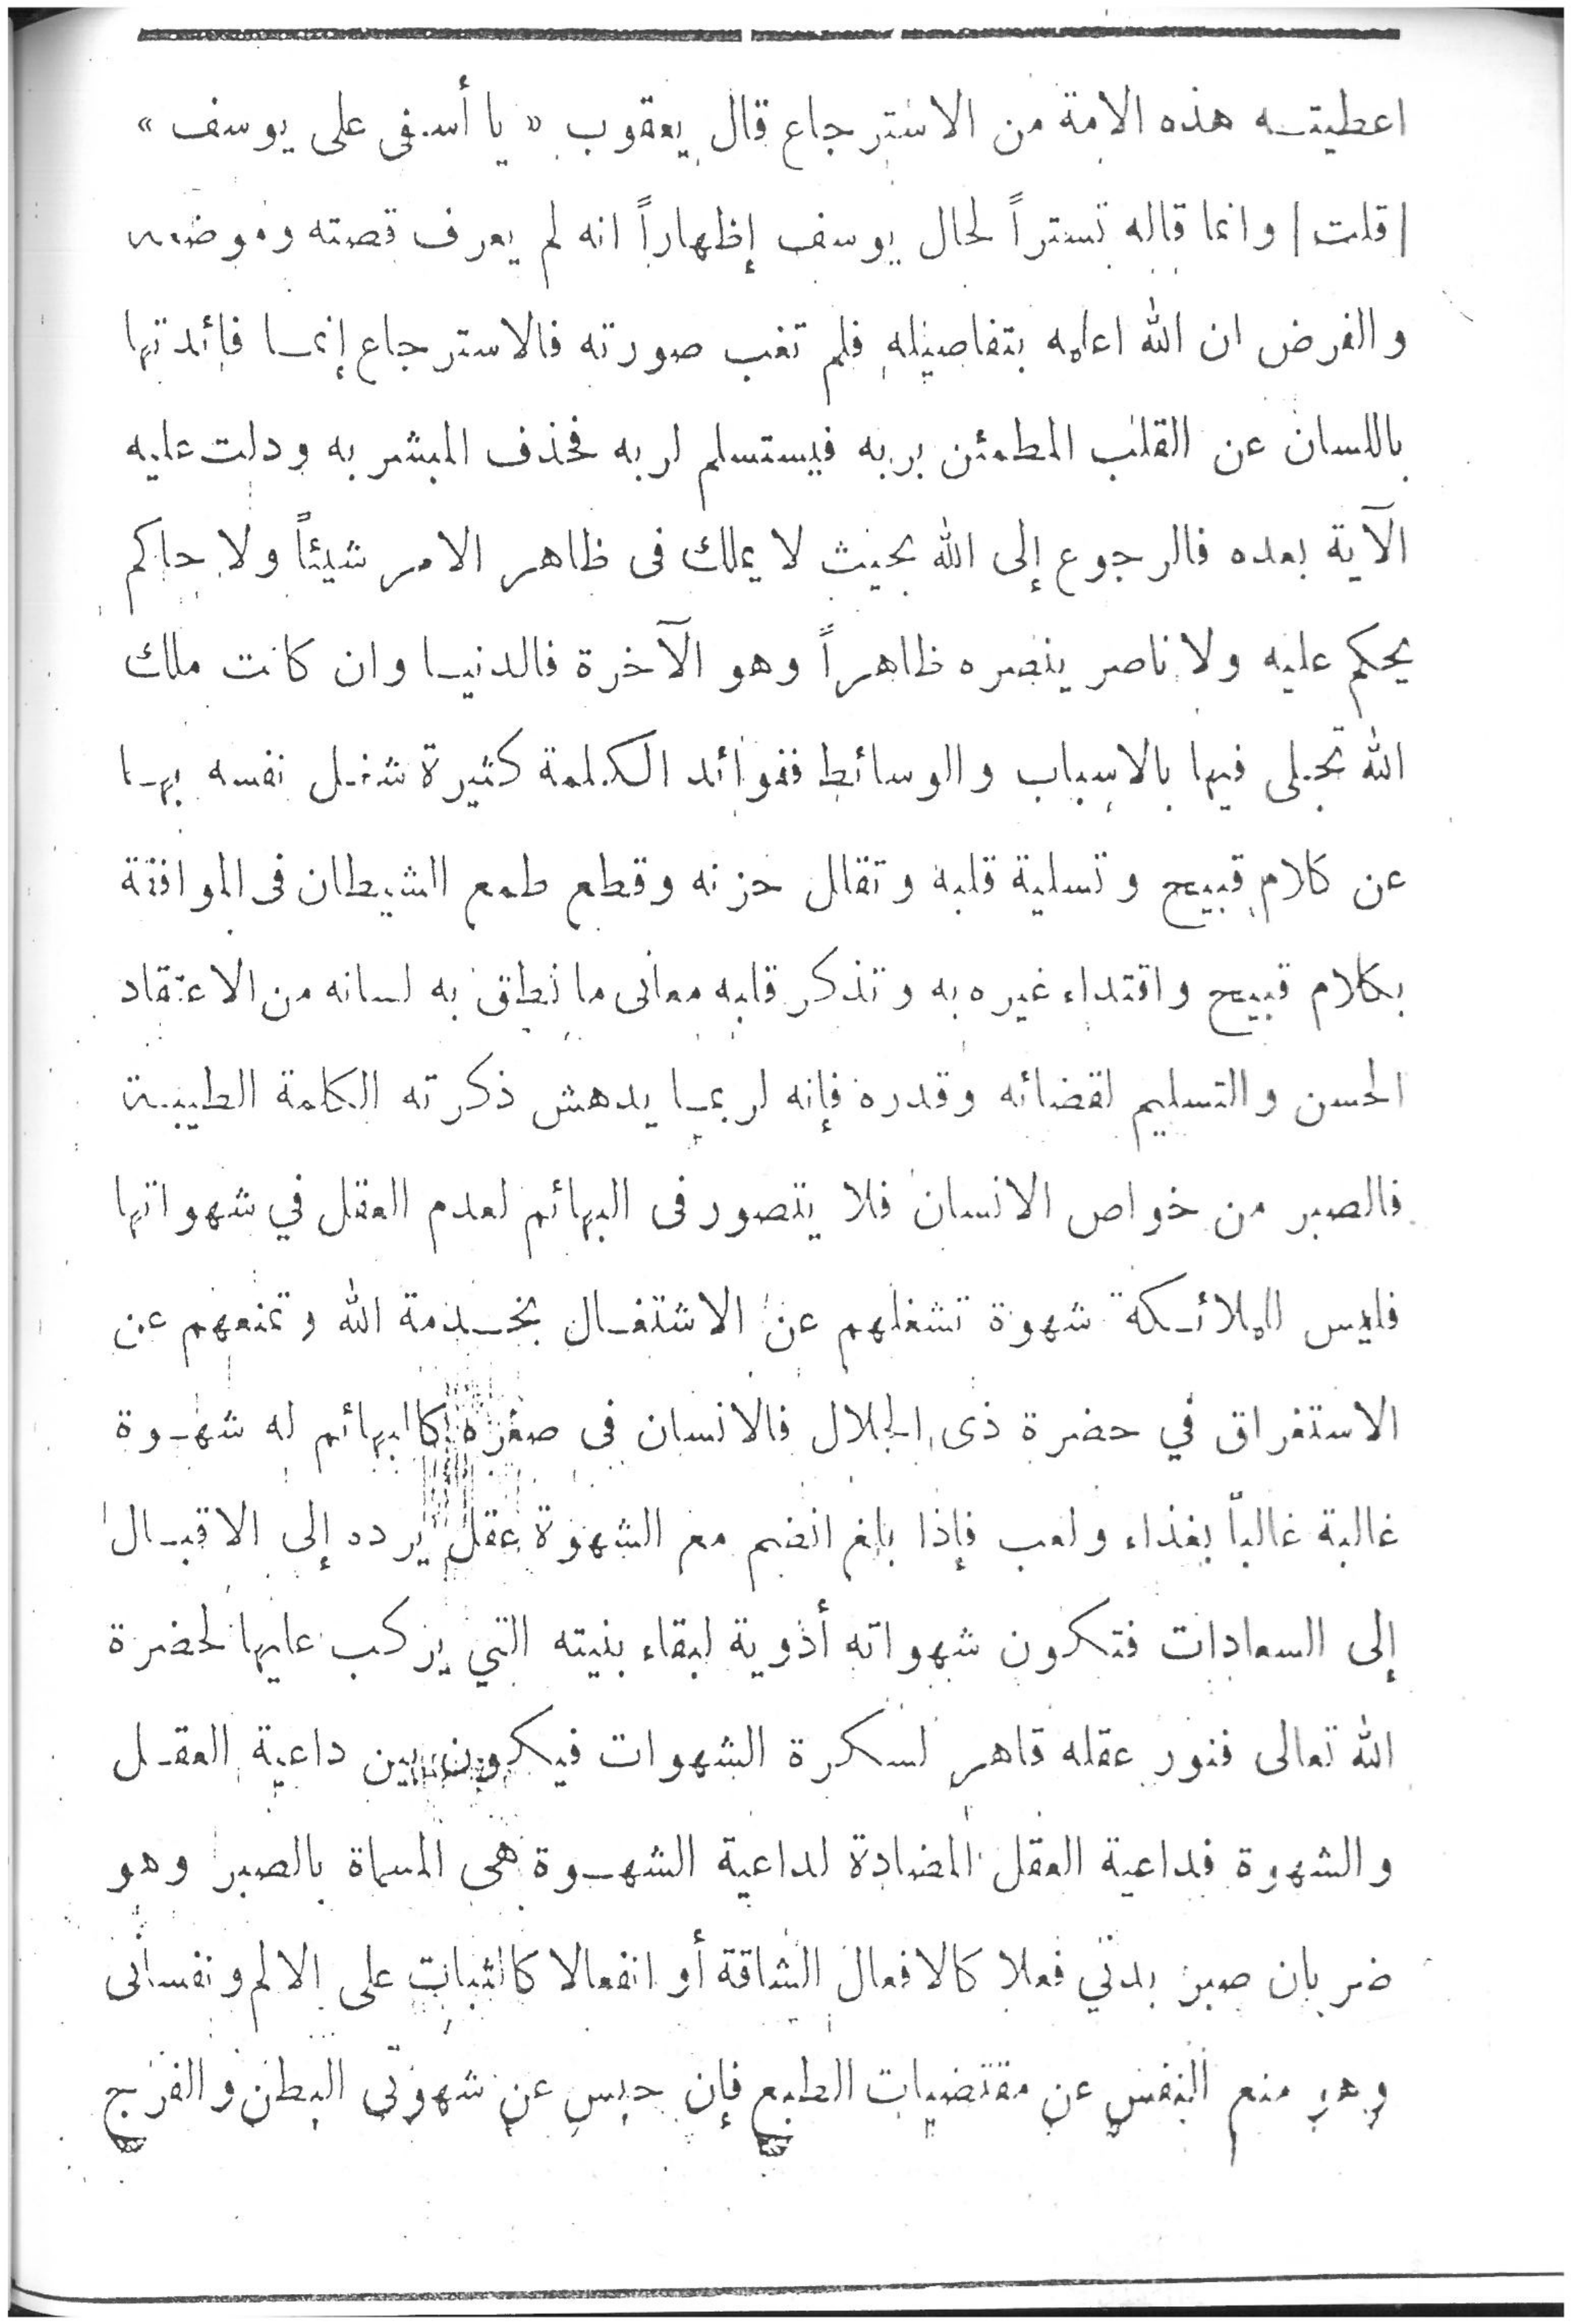 اعطيته هذه الامة من الاسترجاع قال يعقوب « يا أسفى على يوسف »
(قلت) وانما قاله تستراً لحال يوسف إظهاراً انه لم يعرف قصته وموضعه
والغرض ان الله اعلمه بتفاصيله فلم تغب صورته فالاسترجاع إنما فائدتها
باللسان عن القلب المطمئن بربه فيستسلم لربه فحذف المبشر به ودلت عليه
الآية بعده فالرجوع إلى الله بحيث لا يملك فى ظاهر الامر شيئاً ولا حاكم
يحكم عليه ولا ناصر ينصره ظاهراً وهو الآخرة فالدنيا وان كانت ملك
الله تجلى فيها بالاسباب والوسائط ففوائد الكلمة كثيرة شغل نفسه بها
عن كلام قبيح وتسلية قلبه وتقلل حزنه وقطع طمع الشيطان فى الموافقة
بكلام قبيح واقتداء غيره به وتذكر قلبه معانى ما نطق به لسانه من الاعتقاد
الحسن والتسليم لقضائه وقدره فإنه لربما يدهش ذكرته الكلمة الطيبة
فالصبر من خواص الانسان فلا يتصور فى البهائم لعدم العقل في شهواتها
فليس للملائكة شهوة تشغلهم عن الاشتغال بخدمة الله وتمنعهم عن
الاستغراق في حضرة ذى الجلال فالانسان فى صغره كالبهائم له شهوة
غالبة غالباً بغذاء ولعب فإذا بلغ انضم مع الشهوة عقل يرده إلى الاقبال
إلى السعادات فتكون شهواته أدوية لبقاء بنيته التي يركب عليها لحضرة
الله تعالى فنور عقله قاهر لسكرة الشهوات فيكون بين داعية العقل
والشهوة فداعية العقل المضادة لداعية الشهوة هى المسماة بالصبر وهو
ضربان صبر بدني فعلا كالافعال الشاقة أو انفعالا كالثبات على الالم ونفسانى
وهو منع النفس عن مقتضيات الطبع فإن حبس عن شهوتى البطن والفرج